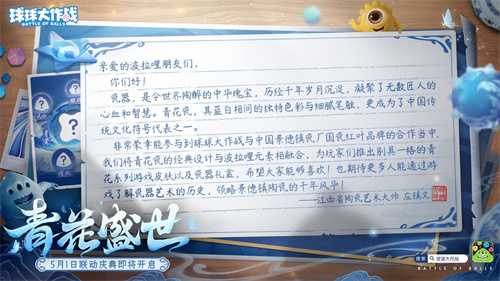 球球大作战
BATTLE OF BALLS
亲爱的波拉哩朋友们,
你们好!
瓷器,是令世界陶醉的中华瑰宝,历经千年岁月沉淀,凝聚了无数匠人的
心血和智慧。青花瓷,其蓝白相间的独特色彩与细腻笔触,更成为了中国传
统文化符号代表之一。
非常荣幸能参与到球球大作战与中国景德镇瓷厂国瓷红叶品牌的合作当中,
我们将青花瓷的经典设计与波拉哩元素相融合,为玩家们推出别具一格的青
花系列游戏皮肤以及瓷器礼盒,希望大家能够喜欢!也期待更多人能通过游
戏了解瓷器艺术的历史,领略景德镇陶瓷的千年风华!
——江西省陶瓷艺术大师 应镇文
青花盛世
5月1日联动庆典即将开启
搜索 球球大作战
BATTLE OF BALLS